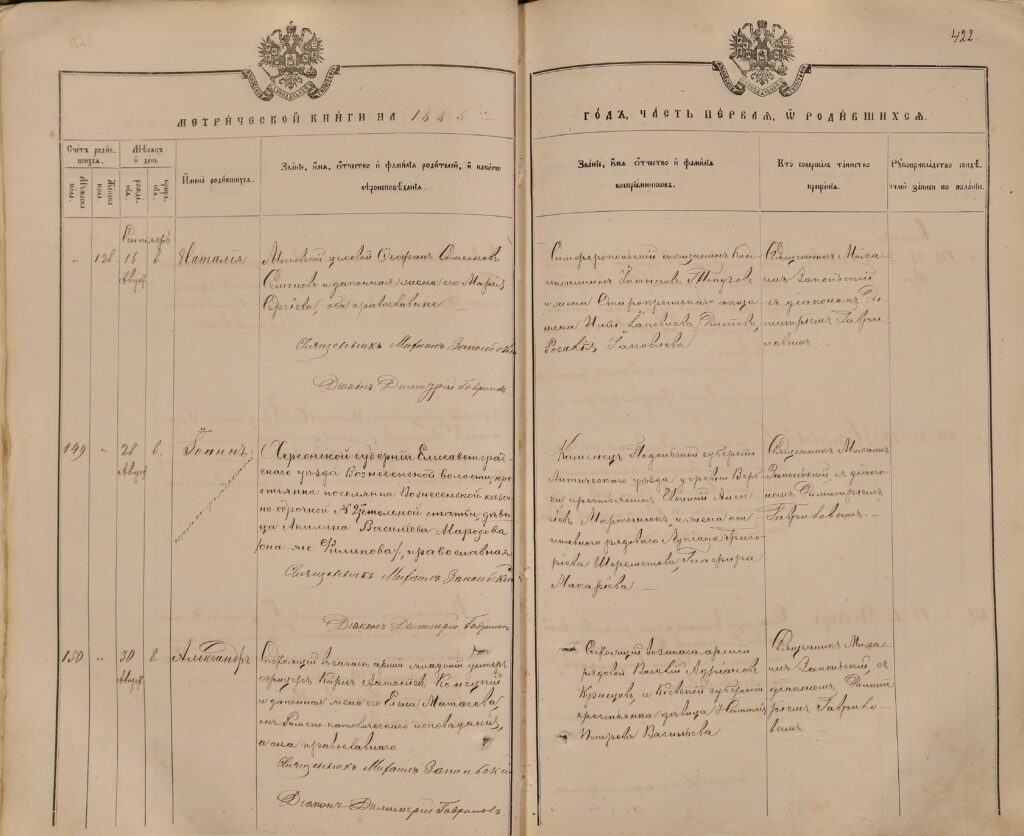 422
МЕТРИЧЕСКОЙ КНИГИ НА 1885
ГОДЪ, ЧАСТЬ ПЕРВАЯ, Ѿ РОДИВШИХСЯ.
Счетъ родив-
шихся.
Мужеска
пола.
Женска
пола.
Мѣсяцъ
и день
рожде-
нія.
креще-
нія.
Имена родившихся.
Званіе, имя, отчество и фамилія родителей, и какого
вѣроисповѣданія.
Званіе, имя, отчество и фамилія
воспріемниковъ.
Кто совершалъ таинство
крещенія.
Рукоприкладство свидѣ-
телей записи по желанію.
Сентябрь
„ 128 15 8
Август
Наталія
Московскій цеховой Стефанъ Симеоновъ
Семеновъ и законная жена его Марія
Сергіева, оба православные
Священникъ Михаилъ Запольскій
Діаконъ Димитрій Гавриловъ
Симферопольскій мѣщанинъ Кон-
стантинъ Іоанновъ
и жена Старокрымского мѣща-
нина Иліи Іаковлева
Іаковлева
Священникъ Миха-
илъ Запольскій
съ діакономъ Ди-
митріемъ Гаври-
ловымъ
149 „ 28 8.
Август
Іоаннъ
незаконнорожденный
Херсонской губерніи Елисаветград-
скаго уѣзда Вознесенской волости, кре-
стьянка поселянка Вознесенской казен-
но-оброчной № 2 статьи, дѣви-
ца Акилина Василіева Марозова
/она же Филипова/, православная
Священникъ Михаилъ Запольскій
Діаконъ Димитрій Гавриловъ
Каменецъ Подольской губерніи
Литическаго уѣзда деревни Вер-
ки, крестьянинъ Евфимій Алек-
сіевъ Мартынюкъ и жена от-
ставного рядоваго Лукіана Григо-
ріева Шереметова, Глафира
Макаріева
Священникъ Михаилъ
Запольскій съ діако-
номъ Димитріемъ
Гавриловымъ
150 „ 30 8.
Август
Александръ
Состоящій въ запасѣ арміи младшій унтеръ
офицеръ Карлъ Антоніевъ Конецкій
и законная жена его Елена Матѳеева,
онъ Римско-католическаго исповѣданія,
а она православнаго
Священникъ Михаилъ Запольскій
Діаконъ Димитрій Гавриловъ
Состоящій въ запасѣ арміи
рядовой Василій Адріановъ
Кузнецовъ, и Кіевской губерніи
крестьянка дѣвица Наталія
Петрова Васильева
Священникъ Миха-
илъ Запольскій, съ
діакономъ Димит-
ріемъ Гаврило-
вымъ